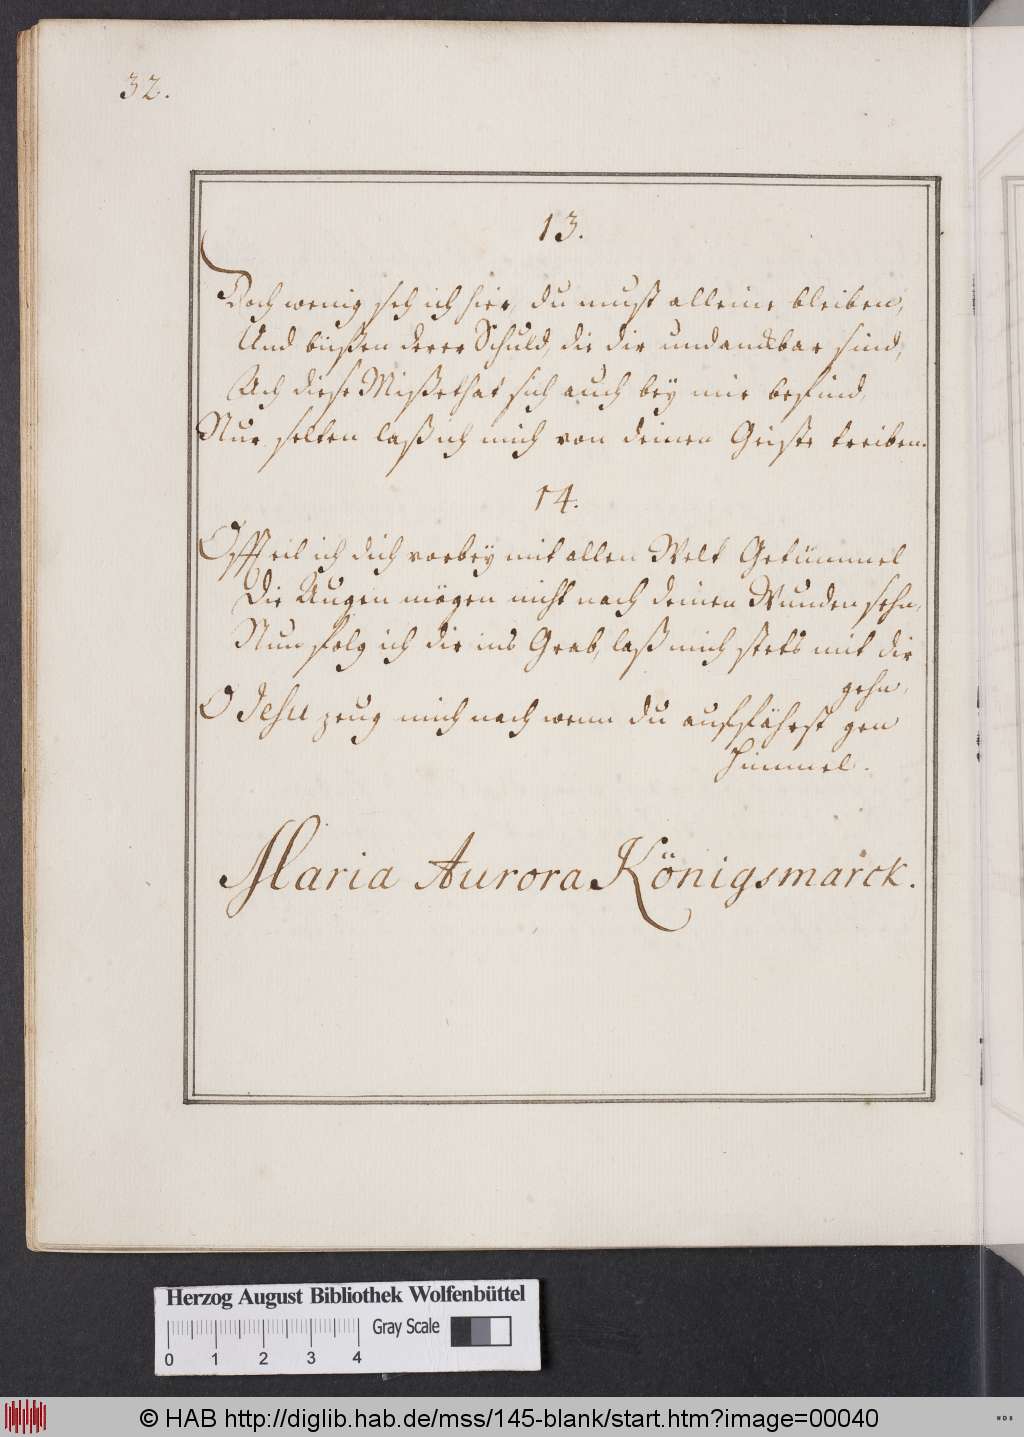 32.
13.
Doch wenig seh ich hier, du must alleine bleiben,
Und büßen derer Schuld, die dir undanckbar sind,
Ach diese Mißethat sich auch bey mir befind,
Nur selten laß ich mich von deinen Geiste treiben.
14.
Offt eil ich dich vorbey mit allen Welt Getümmel
Die Augen mögen nicht nach deinen Wunden sehn,
Nun folg ich dir ins Grab, laß mich stets mit dir
gehn,
O Jesu zeug mich nach wenn du auffährst gen
Himmel.
Maria Aurora Königsmarck.
Herzog August Bibliothek Wolfenbüttel
Gray Scale
0 1 2 3 4
© HAB http://diglib.hab.de/mss/145-blank/start.htm?image=00040